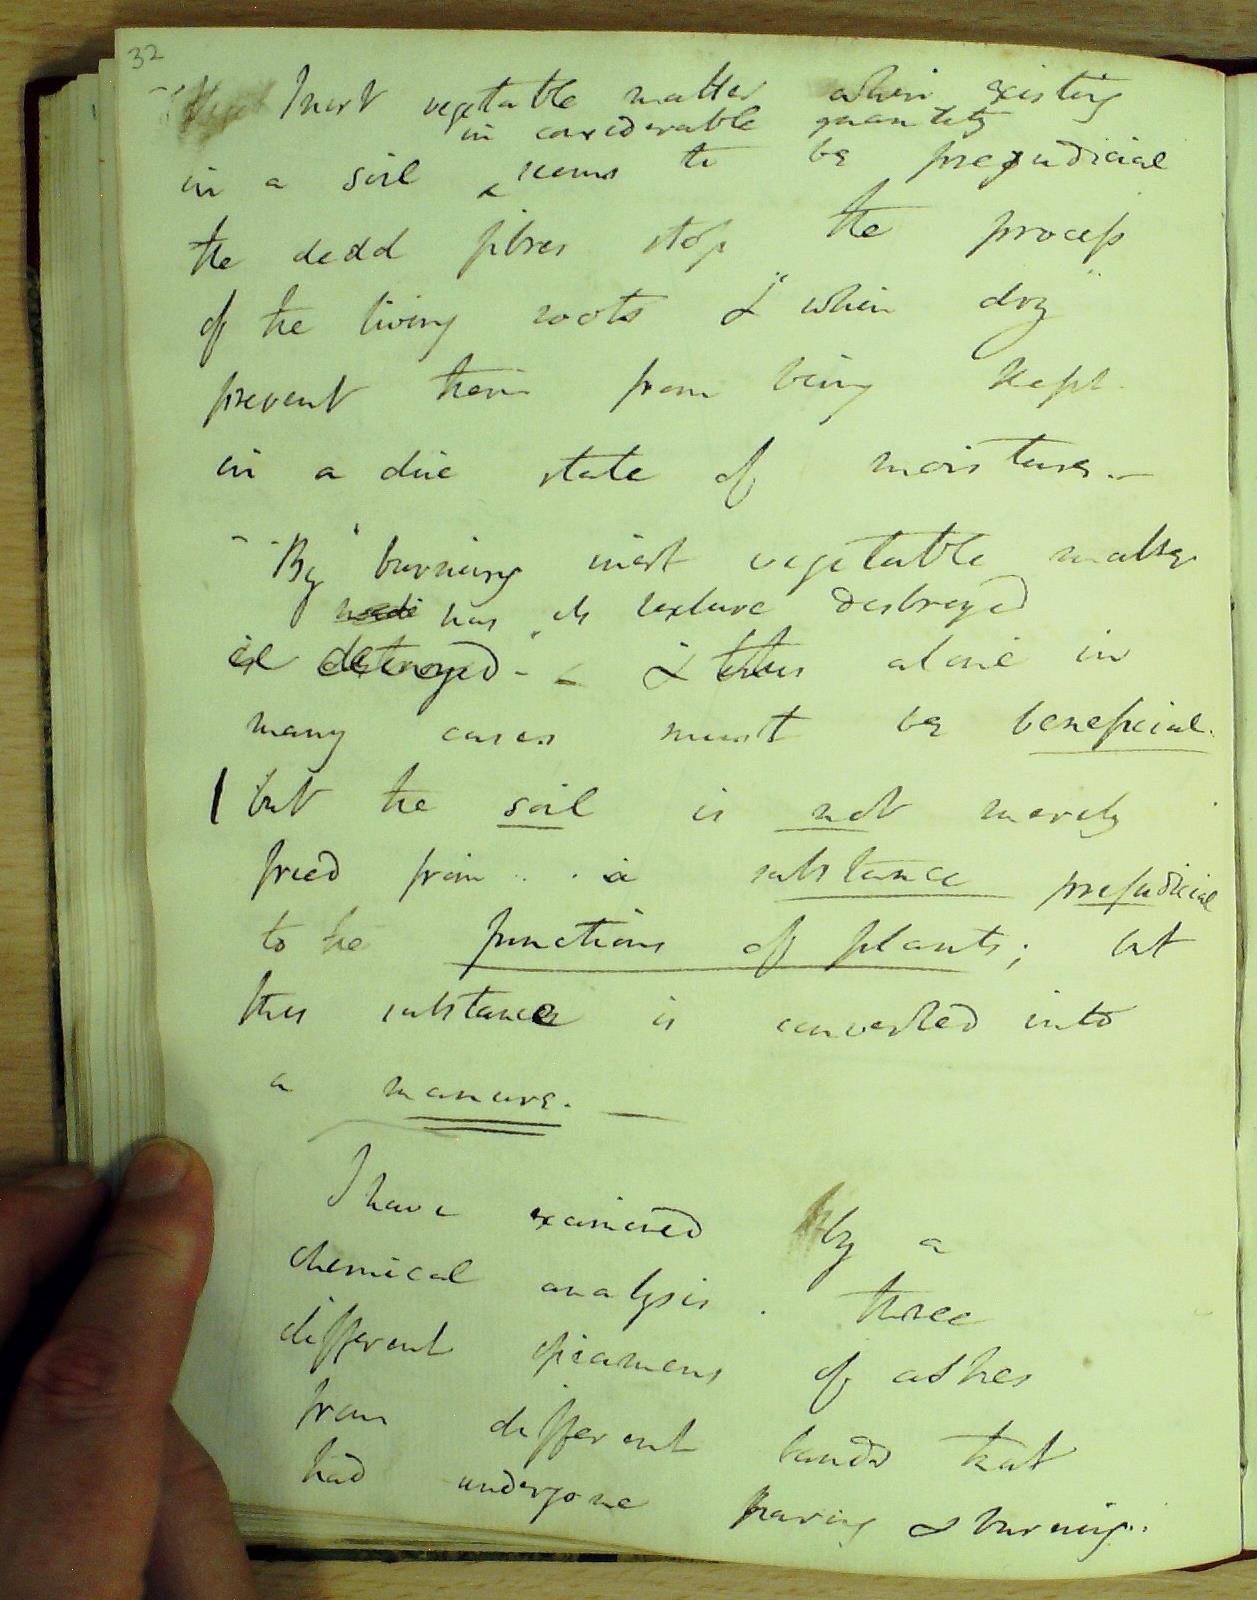 32
Inert vegetable matter when existing
in considerable quantity
in a soil seems to be prejudicial
the dead fibres stop the process
of the living roots & "when dry"
prevent them from being kept
in a due state of moisture. -
- "By" burning inert vegetable matter
has its texture destroyed
is destroyed - & this alone in
many cases must be beneficial.
but the soil is not merely
freed from a substance prejudicial
to the functions of plants; but
this substance is converted into
a manure. -
I have examined by a
chemical analysis. three
different specimens of ashes
from different lands that
had undergone paring & burning..